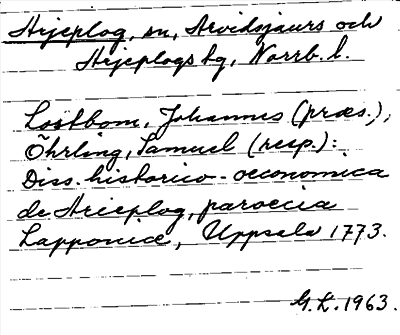 Arjeplog, sn, Arvidsjaurs och
Arjeplogs tg, Norrb. l.
Lostbom, Johannes (præs.),
Öhrling, Samuel (resp.):
Diss. historico-oeconomica
de Arieplog, paroecia
Lapponica, Uppsala 1773.
G.K. 1963.